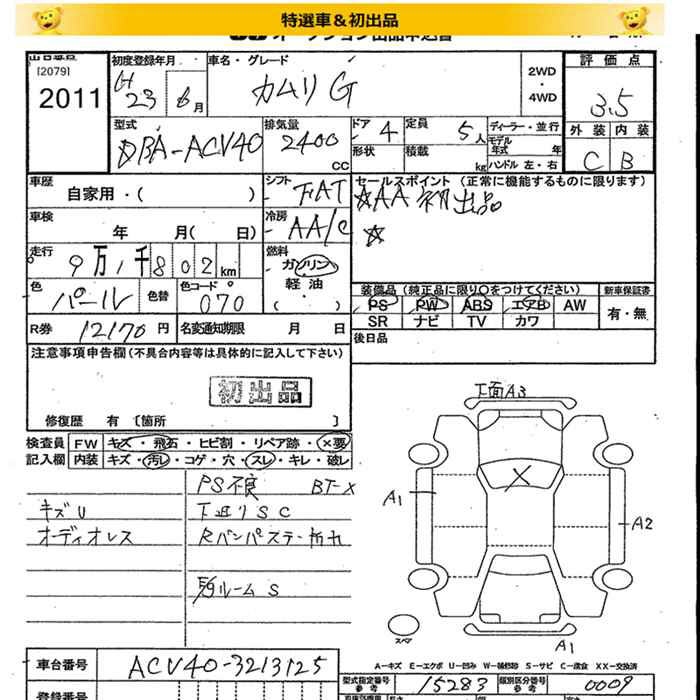 特選車＆初出品
オークション出品申込書
出品番号
[2079]
2011
初度登録年月
H 23 6月
車名・グレード
カムリ G
2WD
・
4WD
評価点
3.5
外装 内装
C B
型式
DBA-ACV40
排気量
2400 CC
ドア 4
定員 5人
ディーラー・並行
モデル年式 年
形状
積載 kg
ハンドル 左・右
車歴
自家用・( )
シフト
FAT
セールスポイント (正常に機能するものに限ります)
☆AA初出品
☆
車検
年 月( 日)
冷房
AA/C
走行
9万1千802km
燃料
ガソリン
軽油
( )
色
パール
色替
色コード
070
装備品 (純正品に限り○をつけてください)
新車保証書
PS PW ABS エアB AW
SR ナビ TV カワ
有・無
R券 12170円
名変通知期限 月 日
後日品
注意事項申告欄(不具合内容等は具体的に記入して下さい)
初出品
修復歴 有 [箇所 ]
検査員記入欄
FW キズ・飛石・ヒビ割・リペア跡・×要
内装 キズ・汚レ・コゲ・穴・スレ・キレ・破レ
PS不良 BT-X
キズU
下廻りSC
オーディオレス
Rバンパステー折れ
ルームS
下面A3
X
A1
A2
スペア
A1
A-キズ E-エクボ U-凹み W-補修跡 S-サビ C-腐食 XX-交換済
車台番号
ACV40-3213125
型式指定番号
参考
15283
類別区分番号
参考
0009